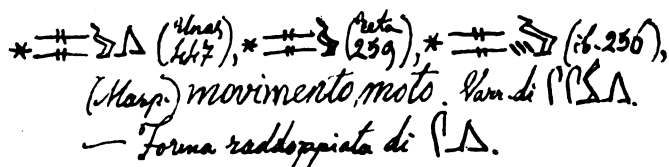 * 𓊃𓊃 𓂻 (Unas 447), * 𓊃𓊃 (Teta 259), * 𓊃𓊃 (ib. 250),
(Masp.) movimento, moto. Varr. di 𓋴𓋴 𓂻.
— Forma raddoppiata di 𓋴𓂻.